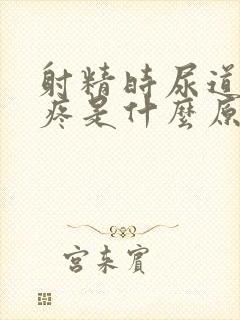 射精時尿道
疼是什麼原
宮来賓